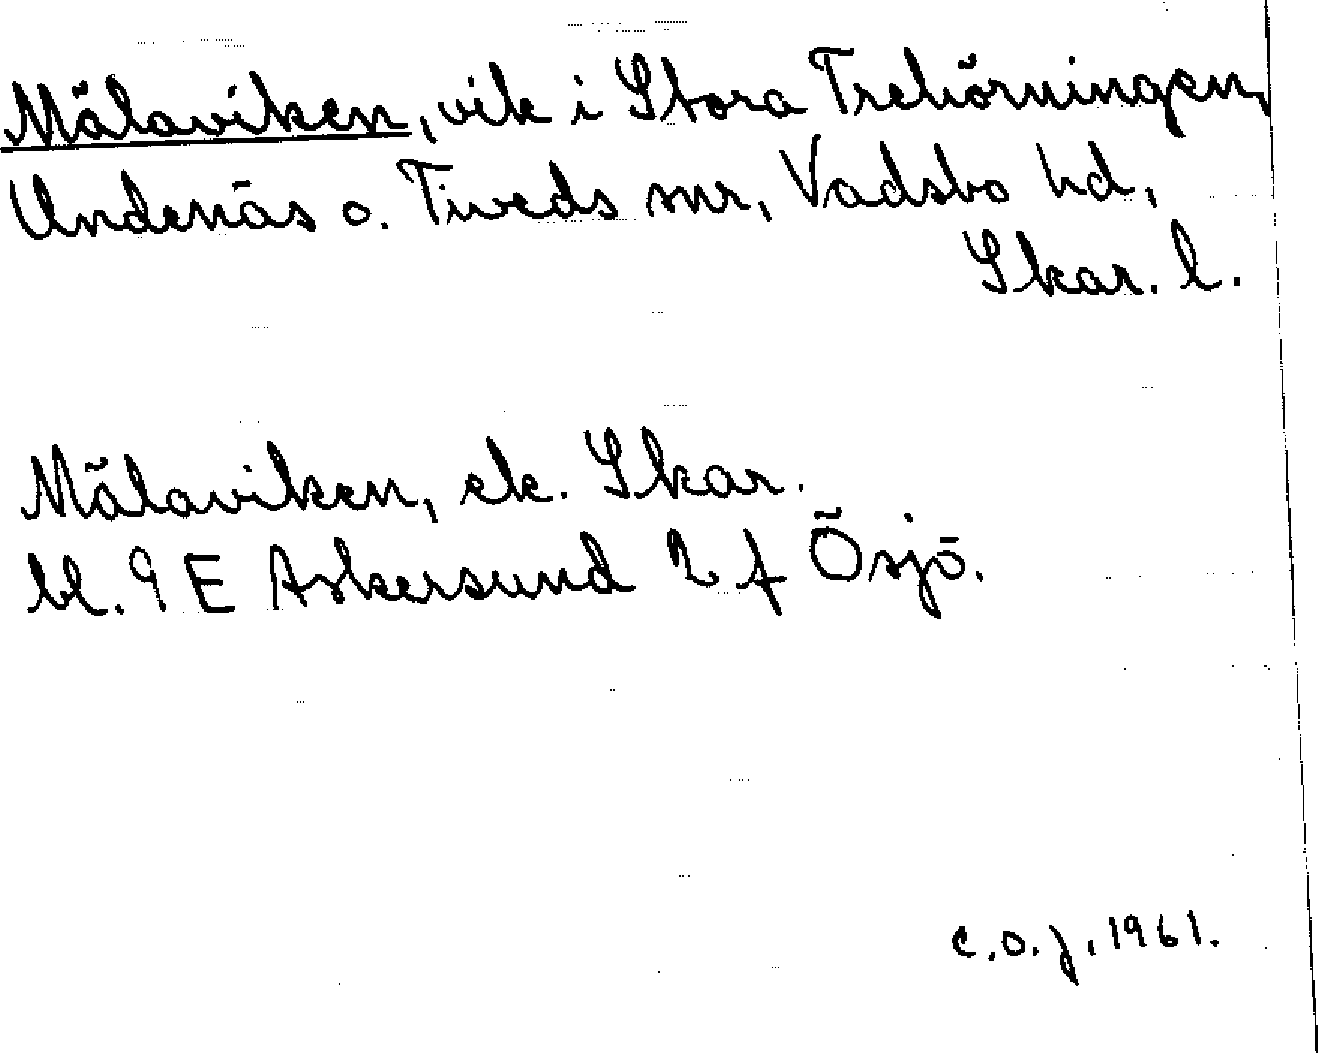 Mälaviken, vik i Stora Trehörningen,
Undenäs o. Tiveds snr, Vadsbo hd,
Skar. l.
Mälaviken, ek. Skar.
bl. 9 E Askersund 2 f Ösjö.
C.O.J. 1961.